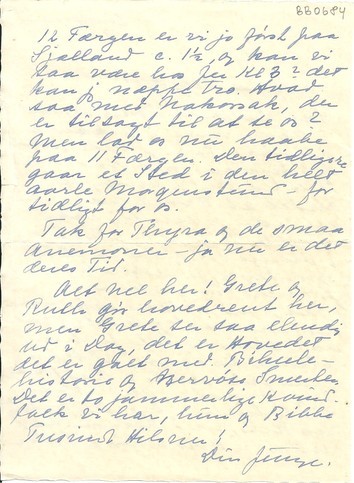 BB0684
12 Færgen er vi jo først paa
Sjælland c. 1½, og kan vi
saa være hos Jer Kl 3? det
kan jeg næppe tro. Hvad
saa med Nakorsak, der
er tilsagt til at se os?
Men lad os nu haabe
paa 11 Færgen. Den tidligere
gaar et Sted i den helt
aarle Morgenstund – for
tidligt for os.
Tak for Thyra og de smaa
Anemoner – ja nu er det
deres Tid.
Alt vel her! Grete og
Rulle gør hovedrent her,
men Grete ser saa elendig
ud i Dag, det er Hovedet
det er galt med. Bihule-
historie og Smerter.
Det er to jammerlige Kvind-
folk vi har, hun og Bibbe
Tusind Hilsner!
Din Junge.